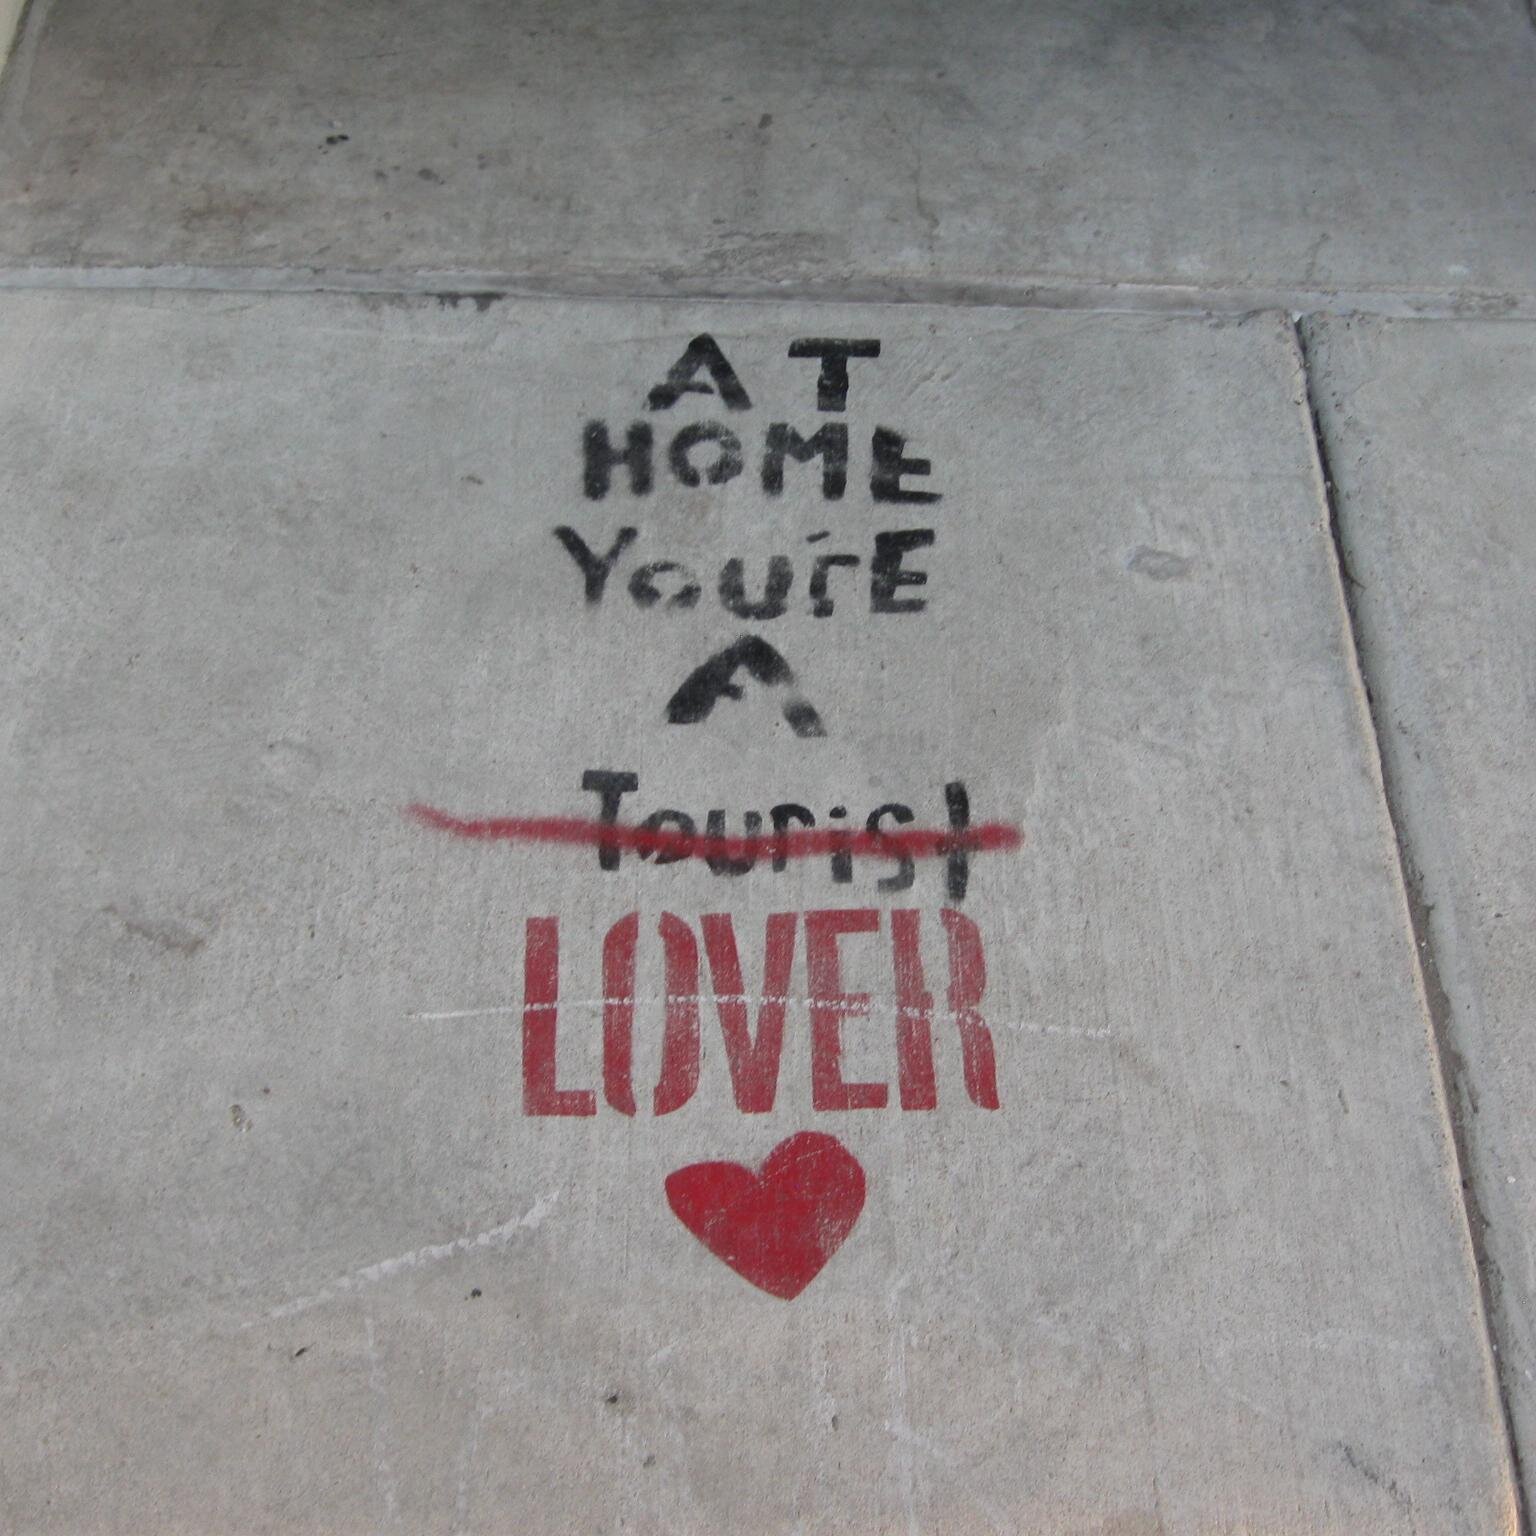 AT
HOME
You'rE
A
Tourist
LOVER